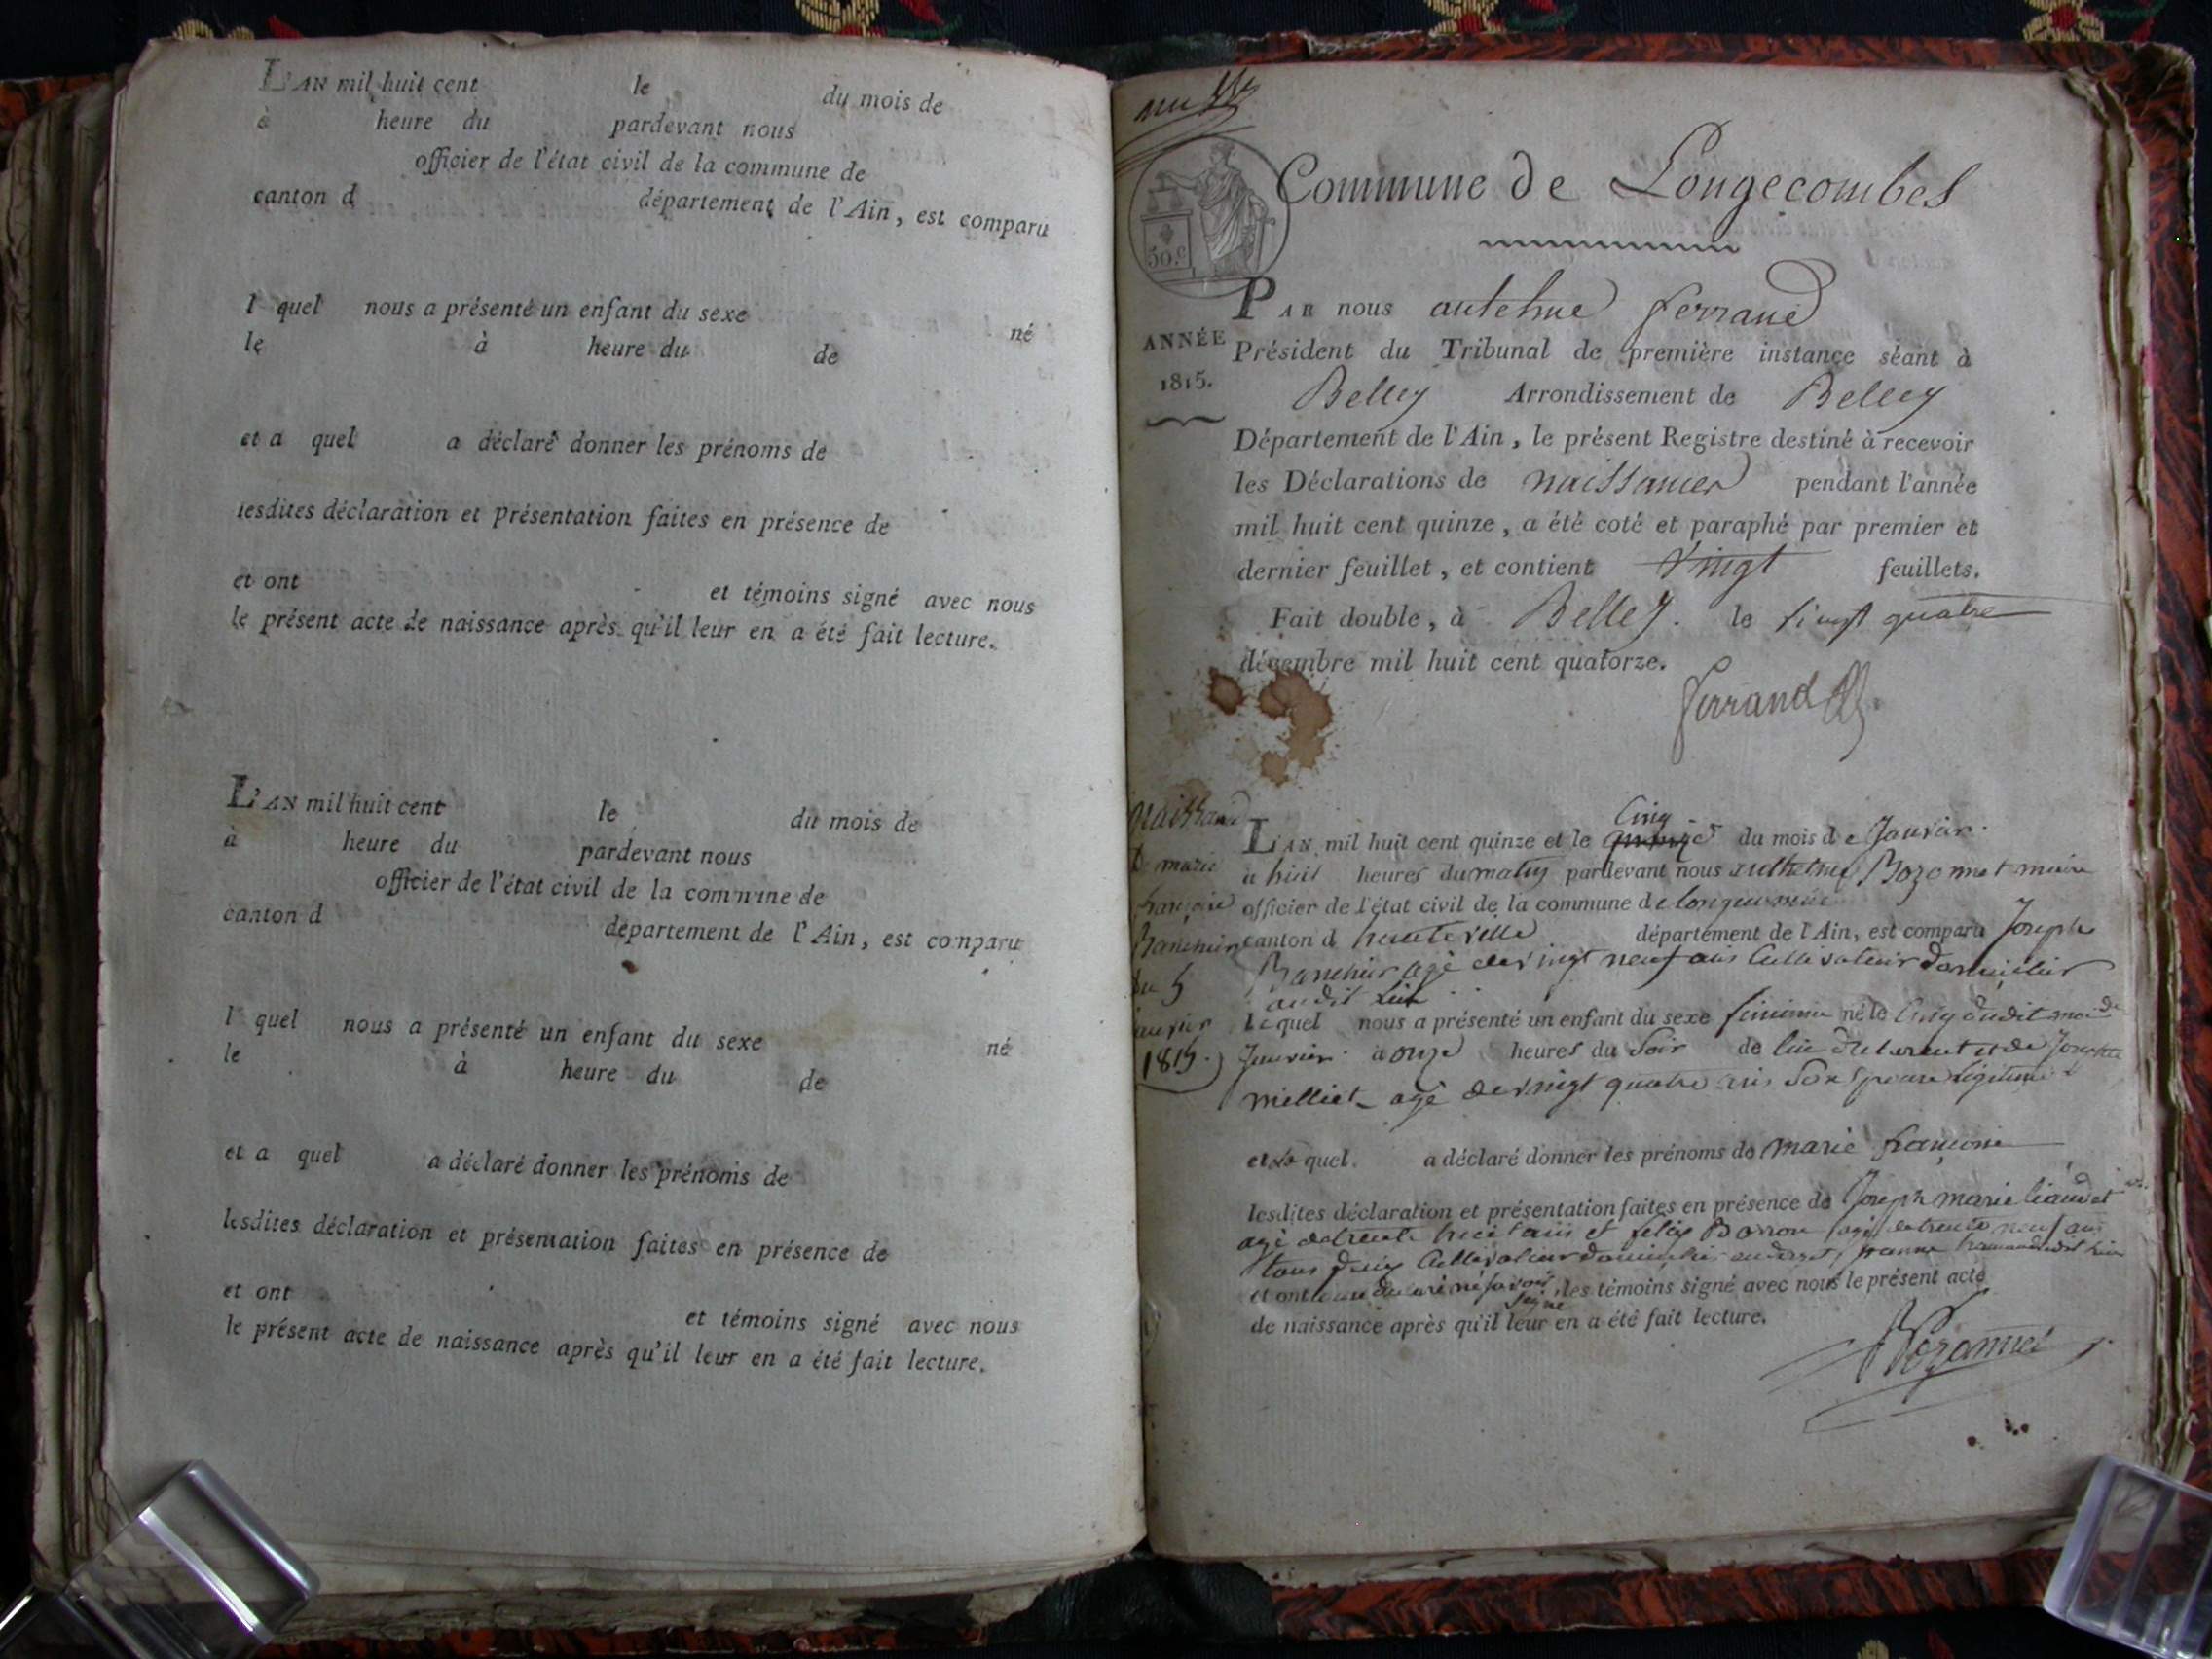 L'AN mil huit cent le du mois de
à heure du pardevant nous
officier de l'état civil de la commune de
canton d département de l'Ain, est comparu
l quel nous a présenté un enfant du sexe né
le à heure du de
et a quel a déclaré donner les prénoms de
lesdites déclaration et présentation faites en présence de
et ont et témoins signé avec nous
le présent acte de naissance après qu'il leur en a été fait lecture.
L'AN mil huit cent le du mois de
à heure du pardevant nous
officier de l'état civil de la commune de
canton d département de l'Ain, est comparu
l quel nous a présenté un enfant du sexe né
le à heure du de
et a quel a déclaré donner les prénoms de
lesdites déclaration et présentation faites en présence de
et ont et témoins signé avec nous
le présent acte de naissance après qu'il leur en a été fait lecture.
Commune de Longecombes
50.c
PAR nous antelme ferrand
ANNÉE
1815.
Président du Tribunal de première instance séant à
Belley Arrondissement de Belley
Département de l'Ain, le présent Registre destiné à recevoir
les Déclarations de naissances pendant l'année
mil huit cent quinze, a été coté et paraphé par premier et
dernier feuillet, et contient vingt feuillets.
Fait double, à Belley. le vingt quatre
décembre mil huit cent quatorze.
ferrand
naissance
de marie
françoise
Banchin
du 5
janvier
1815.
L'AN mil huit cent quinze et le Cinq du mois de Janvier
à huit heures du matin pardevant nous anthelme Bozonnet maire
officier de l'état civil de la commune de
canton d hauteville département de l'Ain, est comparu Joseph
agé de vingt neuf ans Cultivateur domicilié
audit lieu
le quel nous a présenté un enfant du sexe féminin né le Cinq dudit mois de
Janvier à onze heures du Soir de lui déclarant et de Josephte
milliet agé de vingt quatre ans Son epouse légitime
et le quel a déclaré donner les prénoms de marie françoise
lesdites déclaration et présentation faites en présence de Joseph marie
agé de trente huit ans et felix agé de trente neuf ans
tous deux Cultivateur domicilié
et ont declaré ne savoir signé les témoins signé avec nous le présent acte
de naissance après qu'il leur en a été fait lecture.
Bozonnet